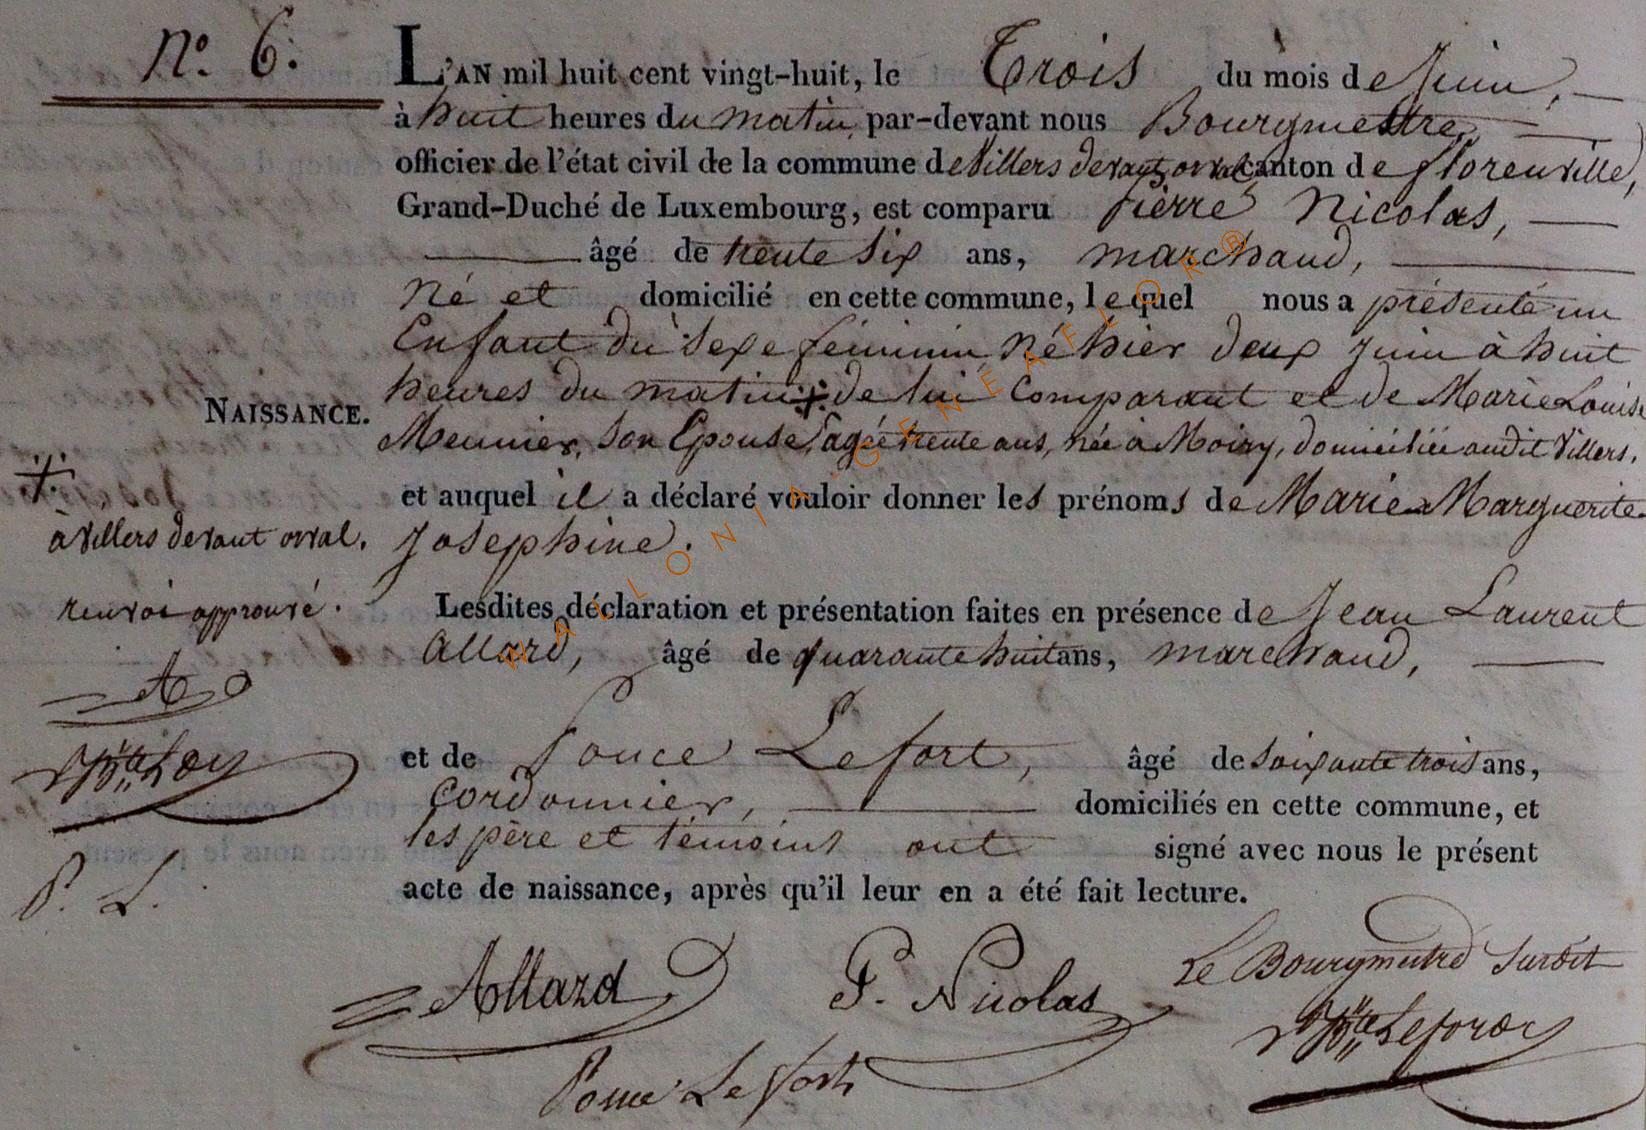 N.° 6.
L'AN mil huit cent vingt-huit, le Trois du mois de Juin,
à huit heures du matin, par-devant nous Bourgmestre,
officier de l'état civil de la commune de Villers devant orval, canton de florenville,
Grand-Duché de Luxembourg, est comparu Pierre Nicolas,
âgé de trente six ans, marchand,
Né et domicilié en cette commune, lequel nous a présenté un
Enfant du sexe féminin Né hier deux Juin à huit
heures du matin ‡ de lui Comparant et de Marie Louise
NAISSANCE.
Meunier, Son Epouse, agée trente ans, née à Moiry, domiciliée audit Villers,
et auquel il a déclaré vouloir donner les prénoms de Marie Marguerite
‡
à Villers devant orval.
Josephine.
renvoi approuvé.
Lesdites déclaration et présentation faites en présence de Jean Laurent
Allard, âgé de quarante huit ans, marchand,
A
et de Ponce Lefort, âgé de soixante trois ans,
Cordonnier, domiciliés en cette commune, et
les père et témoins ont signé avec nous le présent
P. L.
acte de naissance, après qu'il leur en a été fait lecture.
Allard P. Nicolas Le Bourgmestre Surdit
Ponce Lefort
WALLONIA-GENEAFLOR®